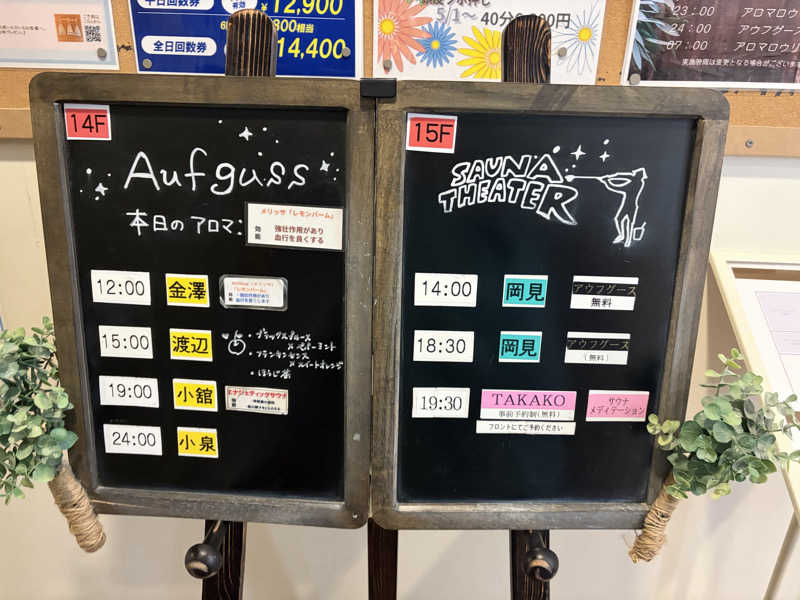 平日回数券
有効
¥12,900
800相当
全日回数券
14,400
5/1〜
40分
23:00
アロマロウリ
24:00
アロマロウリ
07:00
アロマロウリ
実施時間は変更となる場合がござい
14F
Aufguss
本日のアロマ:
メリッサ「レモンバーム」
効能
強壮作用があり
血行を良くする
12:00
金澤
「レモンバーム」
15:00
渡辺
・ブラックスプルース
×ペパーミント
・フランキンセンス
×スイートオレンジ
・ほうじ茶
19:00
小舘
エナジェティックサウナ
24:00
小泉
15F
SAUNA
THEATER
14:00
岡見
アウフグース
無料
18:30
岡見
アウフグース
(無料)
19:30
TAKAKO
事前予約制(無料)
フロントにてご予約ください
サウナ
メディテーション